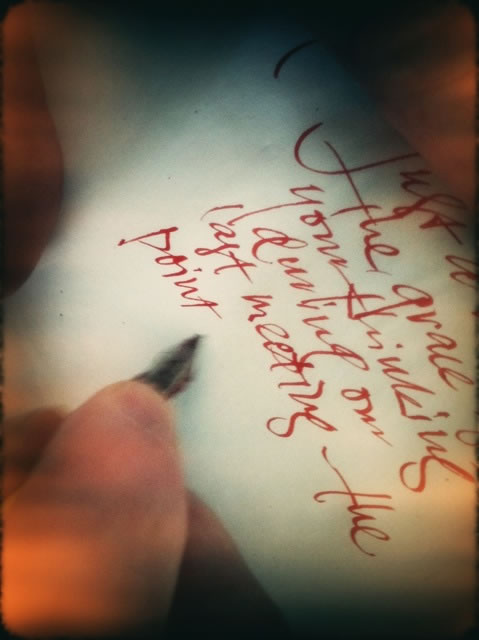 Just
the grace
your thinking
during our
last meeting – the
point